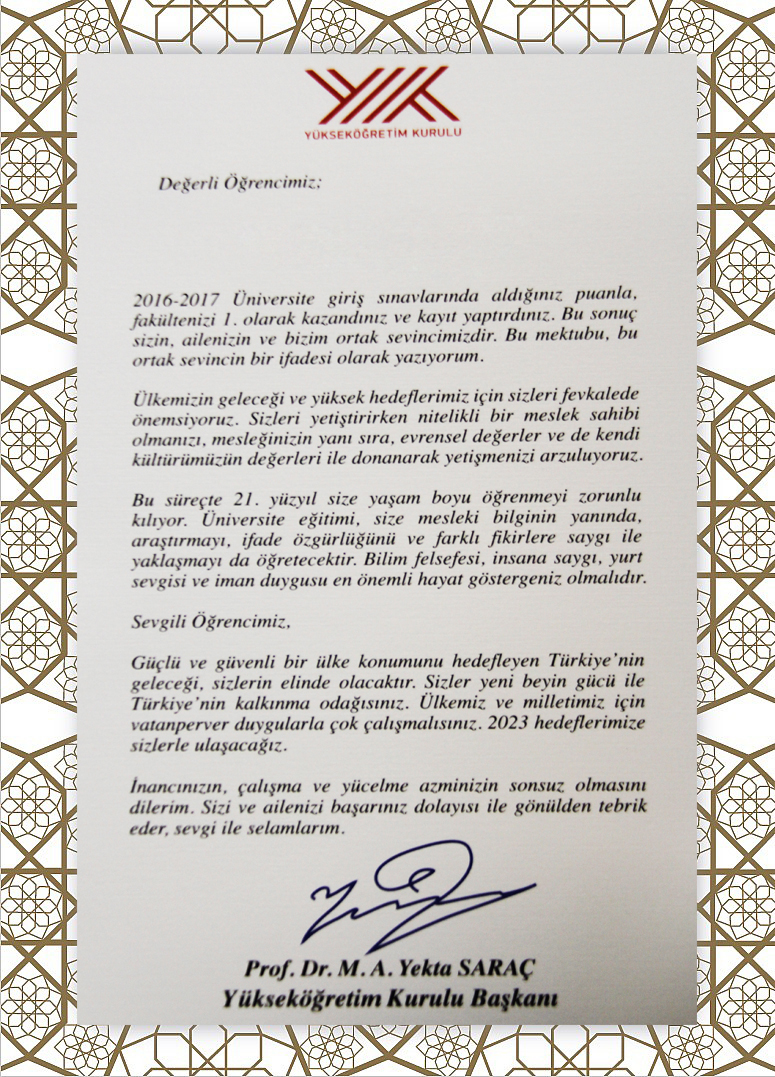 YÖK
YÜKSEKÖĞRETİM KURULU
Değerli Öğrencimiz;
2016-2017 Üniversite giriş sınavlarında aldığınız puanla,
fakültenizi 1. olarak kazandınız ve kayıt yaptırdınız. Bu sonuç
sizin, ailenizin ve bizim ortak sevincimizdir. Bu mektubu, bu
ortak sevincin bir ifadesi olarak yazıyorum.
Ülkemizin geleceği ve yüksek hedeflerimiz için sizleri fevkalede
önemsiyoruz. Sizleri yetiştirirken nitelikli bir meslek sahibi
olmanızı, mesleğinizin yanı sıra, evrensel değerler ve de kendi
kültürümüzün değerleri ile donanarak yetişmenizi arzuluyoruz.
Bu süreçte 21. yüzyıl size yaşam boyu öğrenmeyi zorunlu
kılıyor. Üniversite eğitimi, size mesleki bilginin yanında,
araştırmayı, ifade özgürlüğünü ve farklı fikirlere saygı ile
yaklaşmayı da öğretecektir. Bilim felsefesi, insana saygı, yurt
sevgisi ve iman duygusu en önemli hayat göstergeniz olmalıdır.
Sevgili Öğrencimiz,
Güçlü ve güvenli bir ülke konumunu hedefleyen Türkiye'nin
geleceği, sizlerin elinde olacaktır. Sizler yeni beyin gücü ile
Türkiye'nin kalkınma odağısınız. Ülkemiz ve milletimiz için
vatanperver duygularla çok çalışmalısınız. 2023 hedeflerimize
sizlerle ulaşacağız.
İnancınızın, çalışma ve yücelme azminizin sonsuz olmasını
dilerim. Sizi ve ailenizi başarınız dolayısı ile gönülden tebrik
eder, sevgi ile selamlarım.
Prof. Dr. M. A. Yekta SARAÇ
Yükseköğretim Kurulu Başkanı